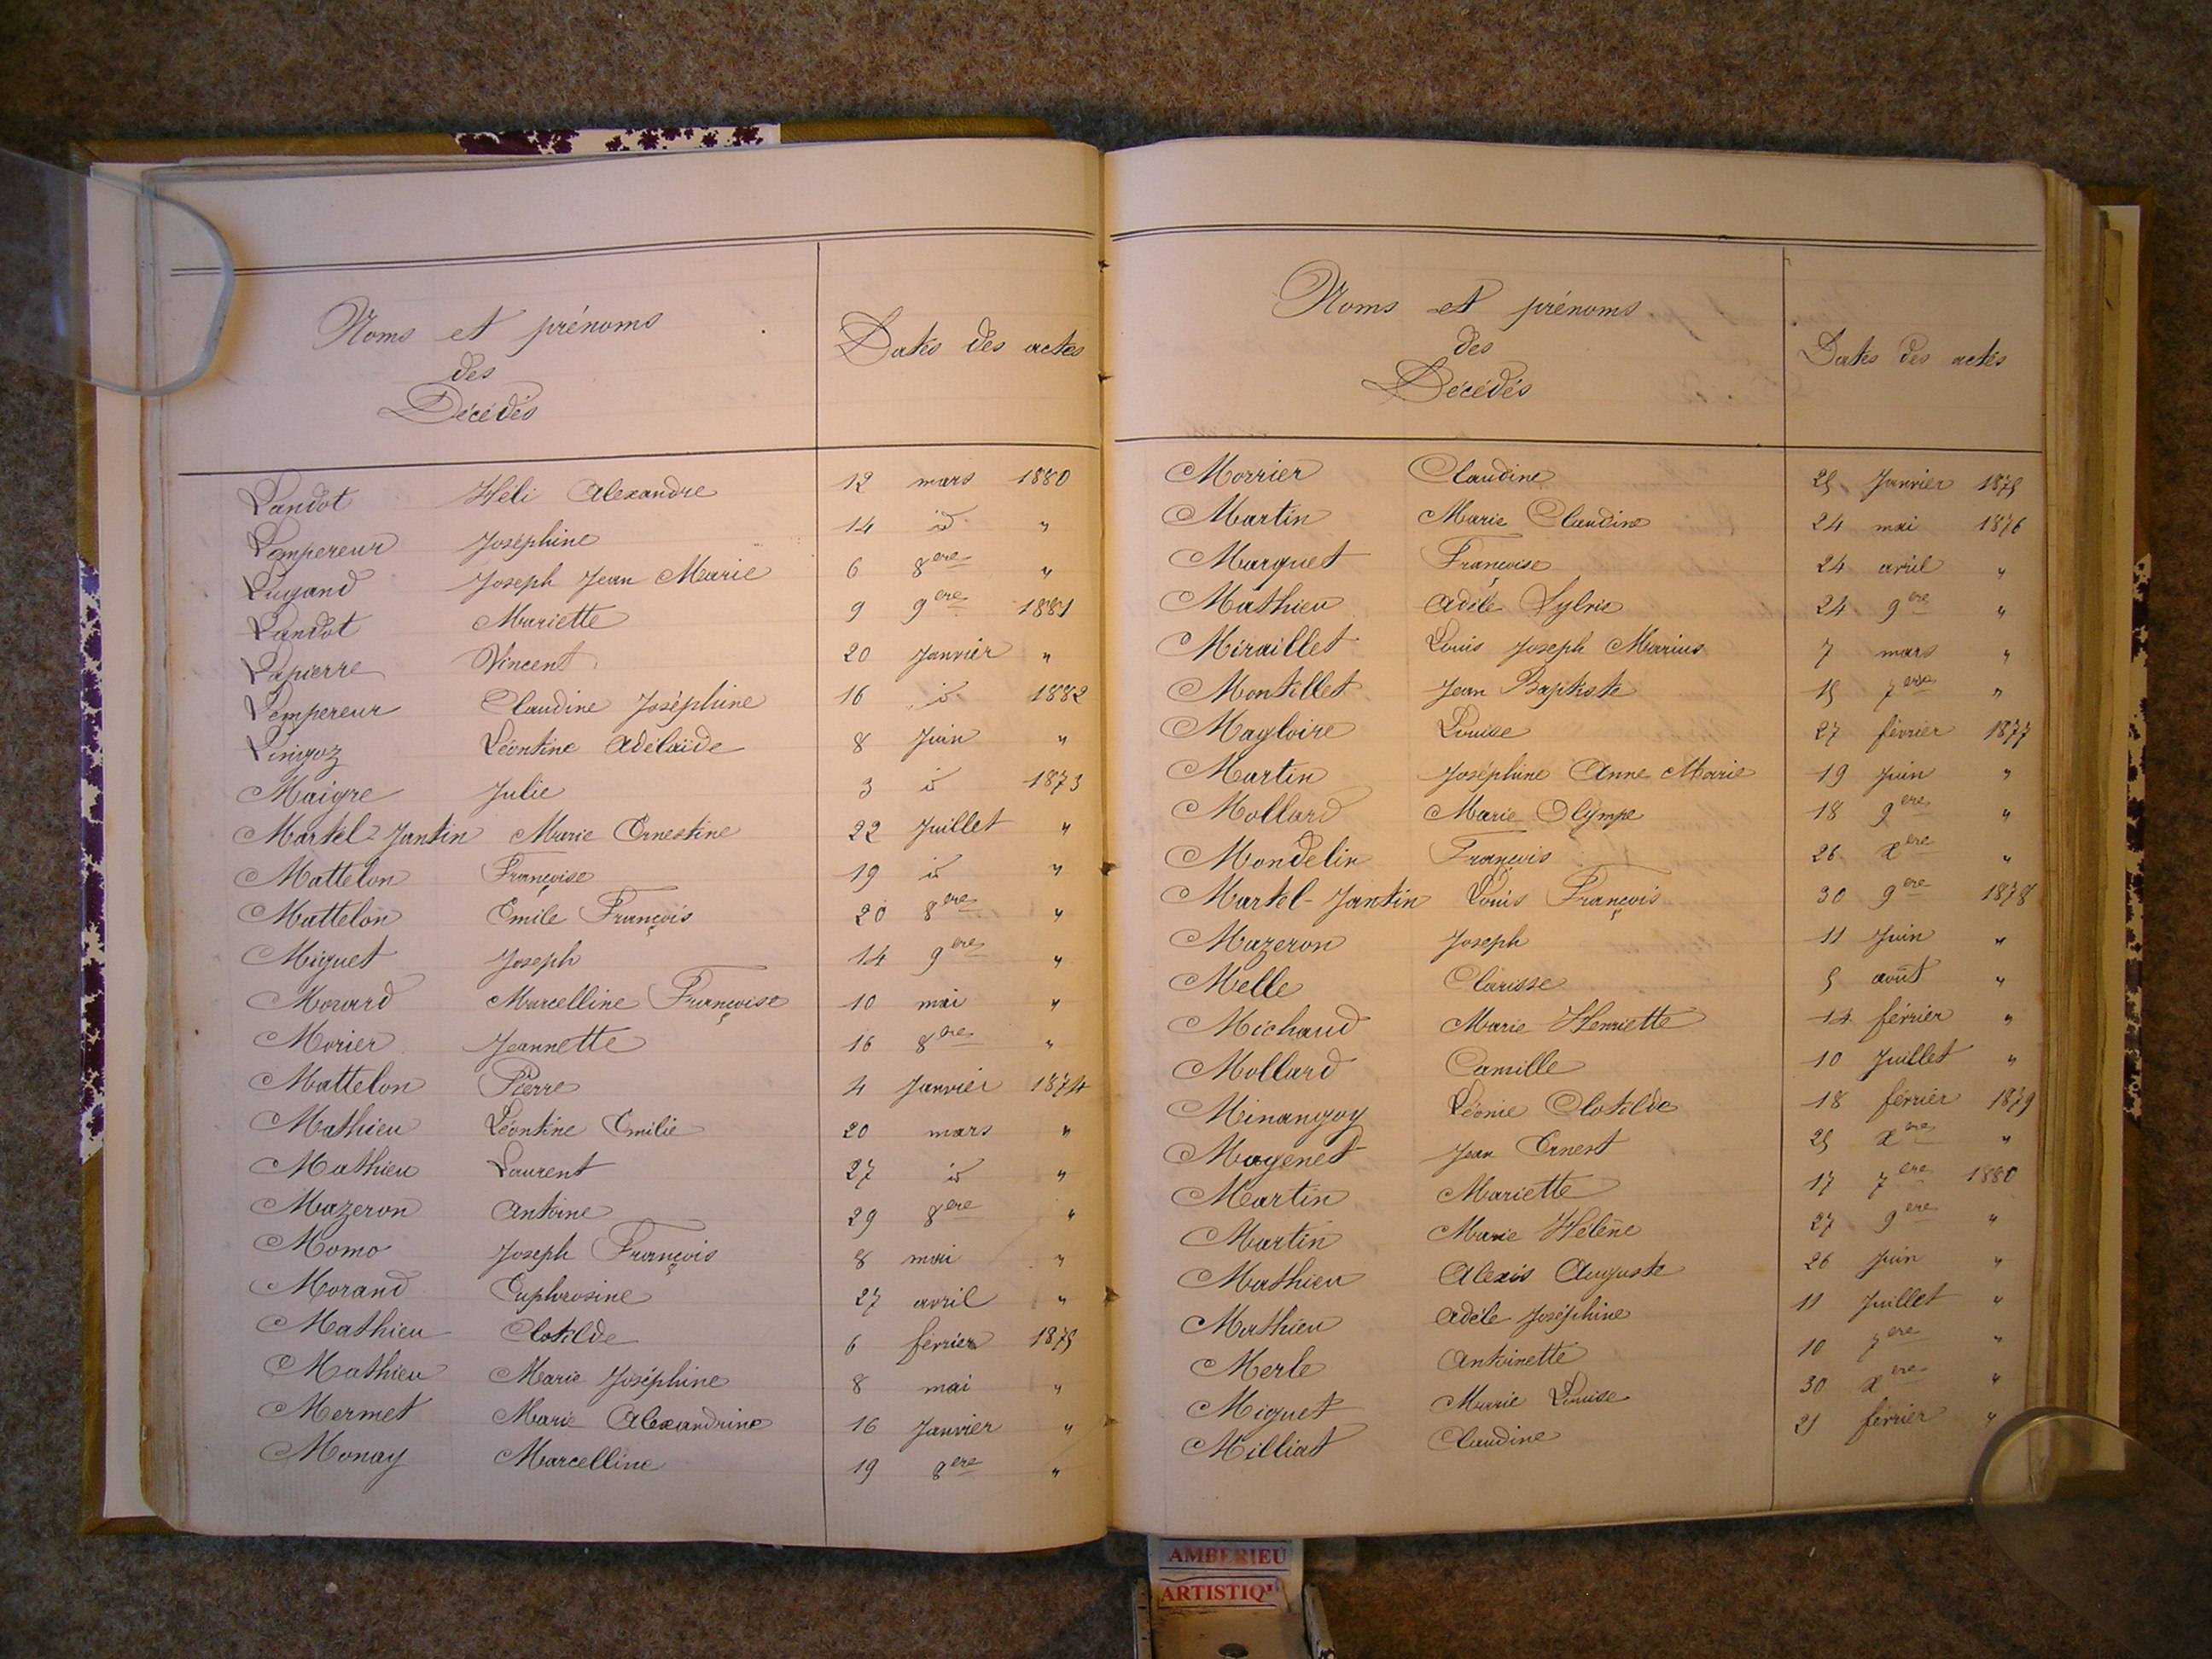 Noms et prénoms
des
Décédés
Dates des actes
Landot Héli Alexandre 12 mars 1880
Lempereur Joséphine 14 id "
Lugand Joseph Jean Marie 6 8ere "
Landot Mariette 9 9ere 1881
Lapierre Vincent 20 Janvier "
Lempereur Claudine Joséphine 16 id 1882
Lingoz Léontine Adélaïde 8 Juin "
Maigre Julie 3 id 1873
Martel-Jantin Marie Ernestine 22 Juillet "
Mattelon Françoise 19 id "
Mattelon Emile François 20 8ere "
Miguet Joseph 14 9ere "
Morard Marcelline Françoise 10 mai "
Morier Jeannette 16 8ere "
Mattelon Pierre 4 Janvier 1874
Mathieu Léontine Emilie 20 mars "
Mathieu Laurent 27 id "
Mazeron Antoine 29 8ere "
Momo Joseph François 8 mai "
Morand Euphrosine 27 avril "
Mathieu Clotilde 6 février 1875
Mathieu Marie Joséphine 8 mai "
Mermet Marie Alexandrine 16 Janvier "
Monay Marcelline 19 8ere "
Noms et prénoms
des
Décédés
Dates des actes
Morrier Claudine 25 Janvier 1875
Martin Marie Claudine 24 mai 1876
Marguet Françoise 24 avril "
Mathieu Adèle Sylvie 24 9ere "
Miraillet Louis Joseph Marius 7 mars "
Montillet Jean Baptiste 15 7ere "
Magloire Louise 27 février 1877
Martin Joséphine Anne Marie 19 Juin "
Mollard Marie Olympe 18 9ere "
Mondelin François 26 Xere "
Martel-Jantin Louis François 30 9ere 1878
Mazeron Joseph 11 Juin "
Melle Clarisse 5 août "
Michaud Marie Henriette 14 février "
Mollard Camille 10 Juillet "
Minangoy Léonie Clotilde 18 février 1879
Magenet Jean Ernest 25 Xere "
Martin Mariette 17 7ere 1880
Martin Marie Hélène 27 9ere "
Mathieu Alexis Auguste 26 Juin "
Mathieu Adèle Joséphine 11 Juillet "
Merle Antoinette 10 7ere "
Miguet Marie Louise 30 Xere "
Milliat Claudine 21 février "
AMBERIEU
ARTISTIQ